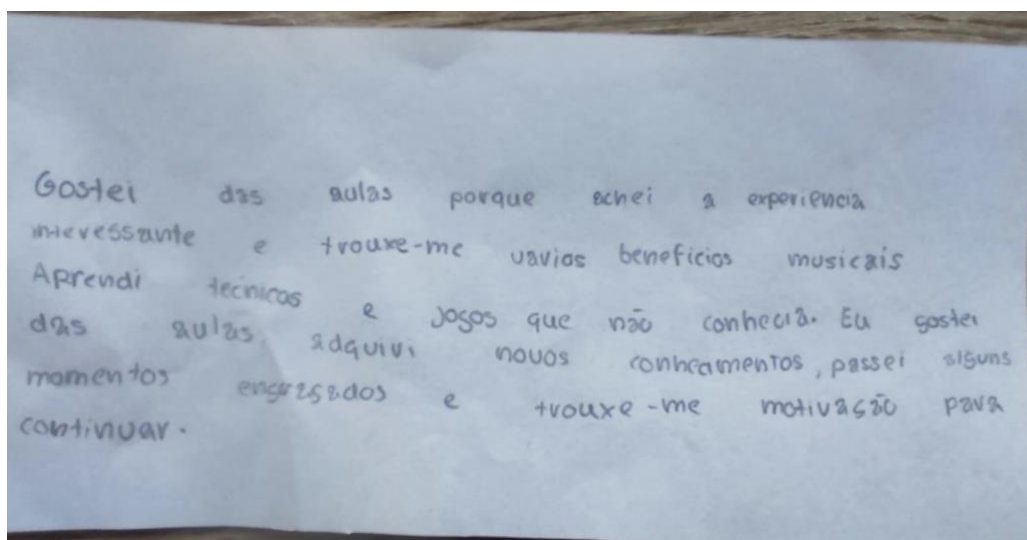 Gostei das aulas porque achei a experiencia
interessante e trouxe-me varios beneficios musicais
Aprendi tecnicas e jogos que não conhecia. Eu gostei
das aulas, adquiri novos conhecimentos, passei alguns
momentos engraçados e trouxe-me motivação para
continuar.